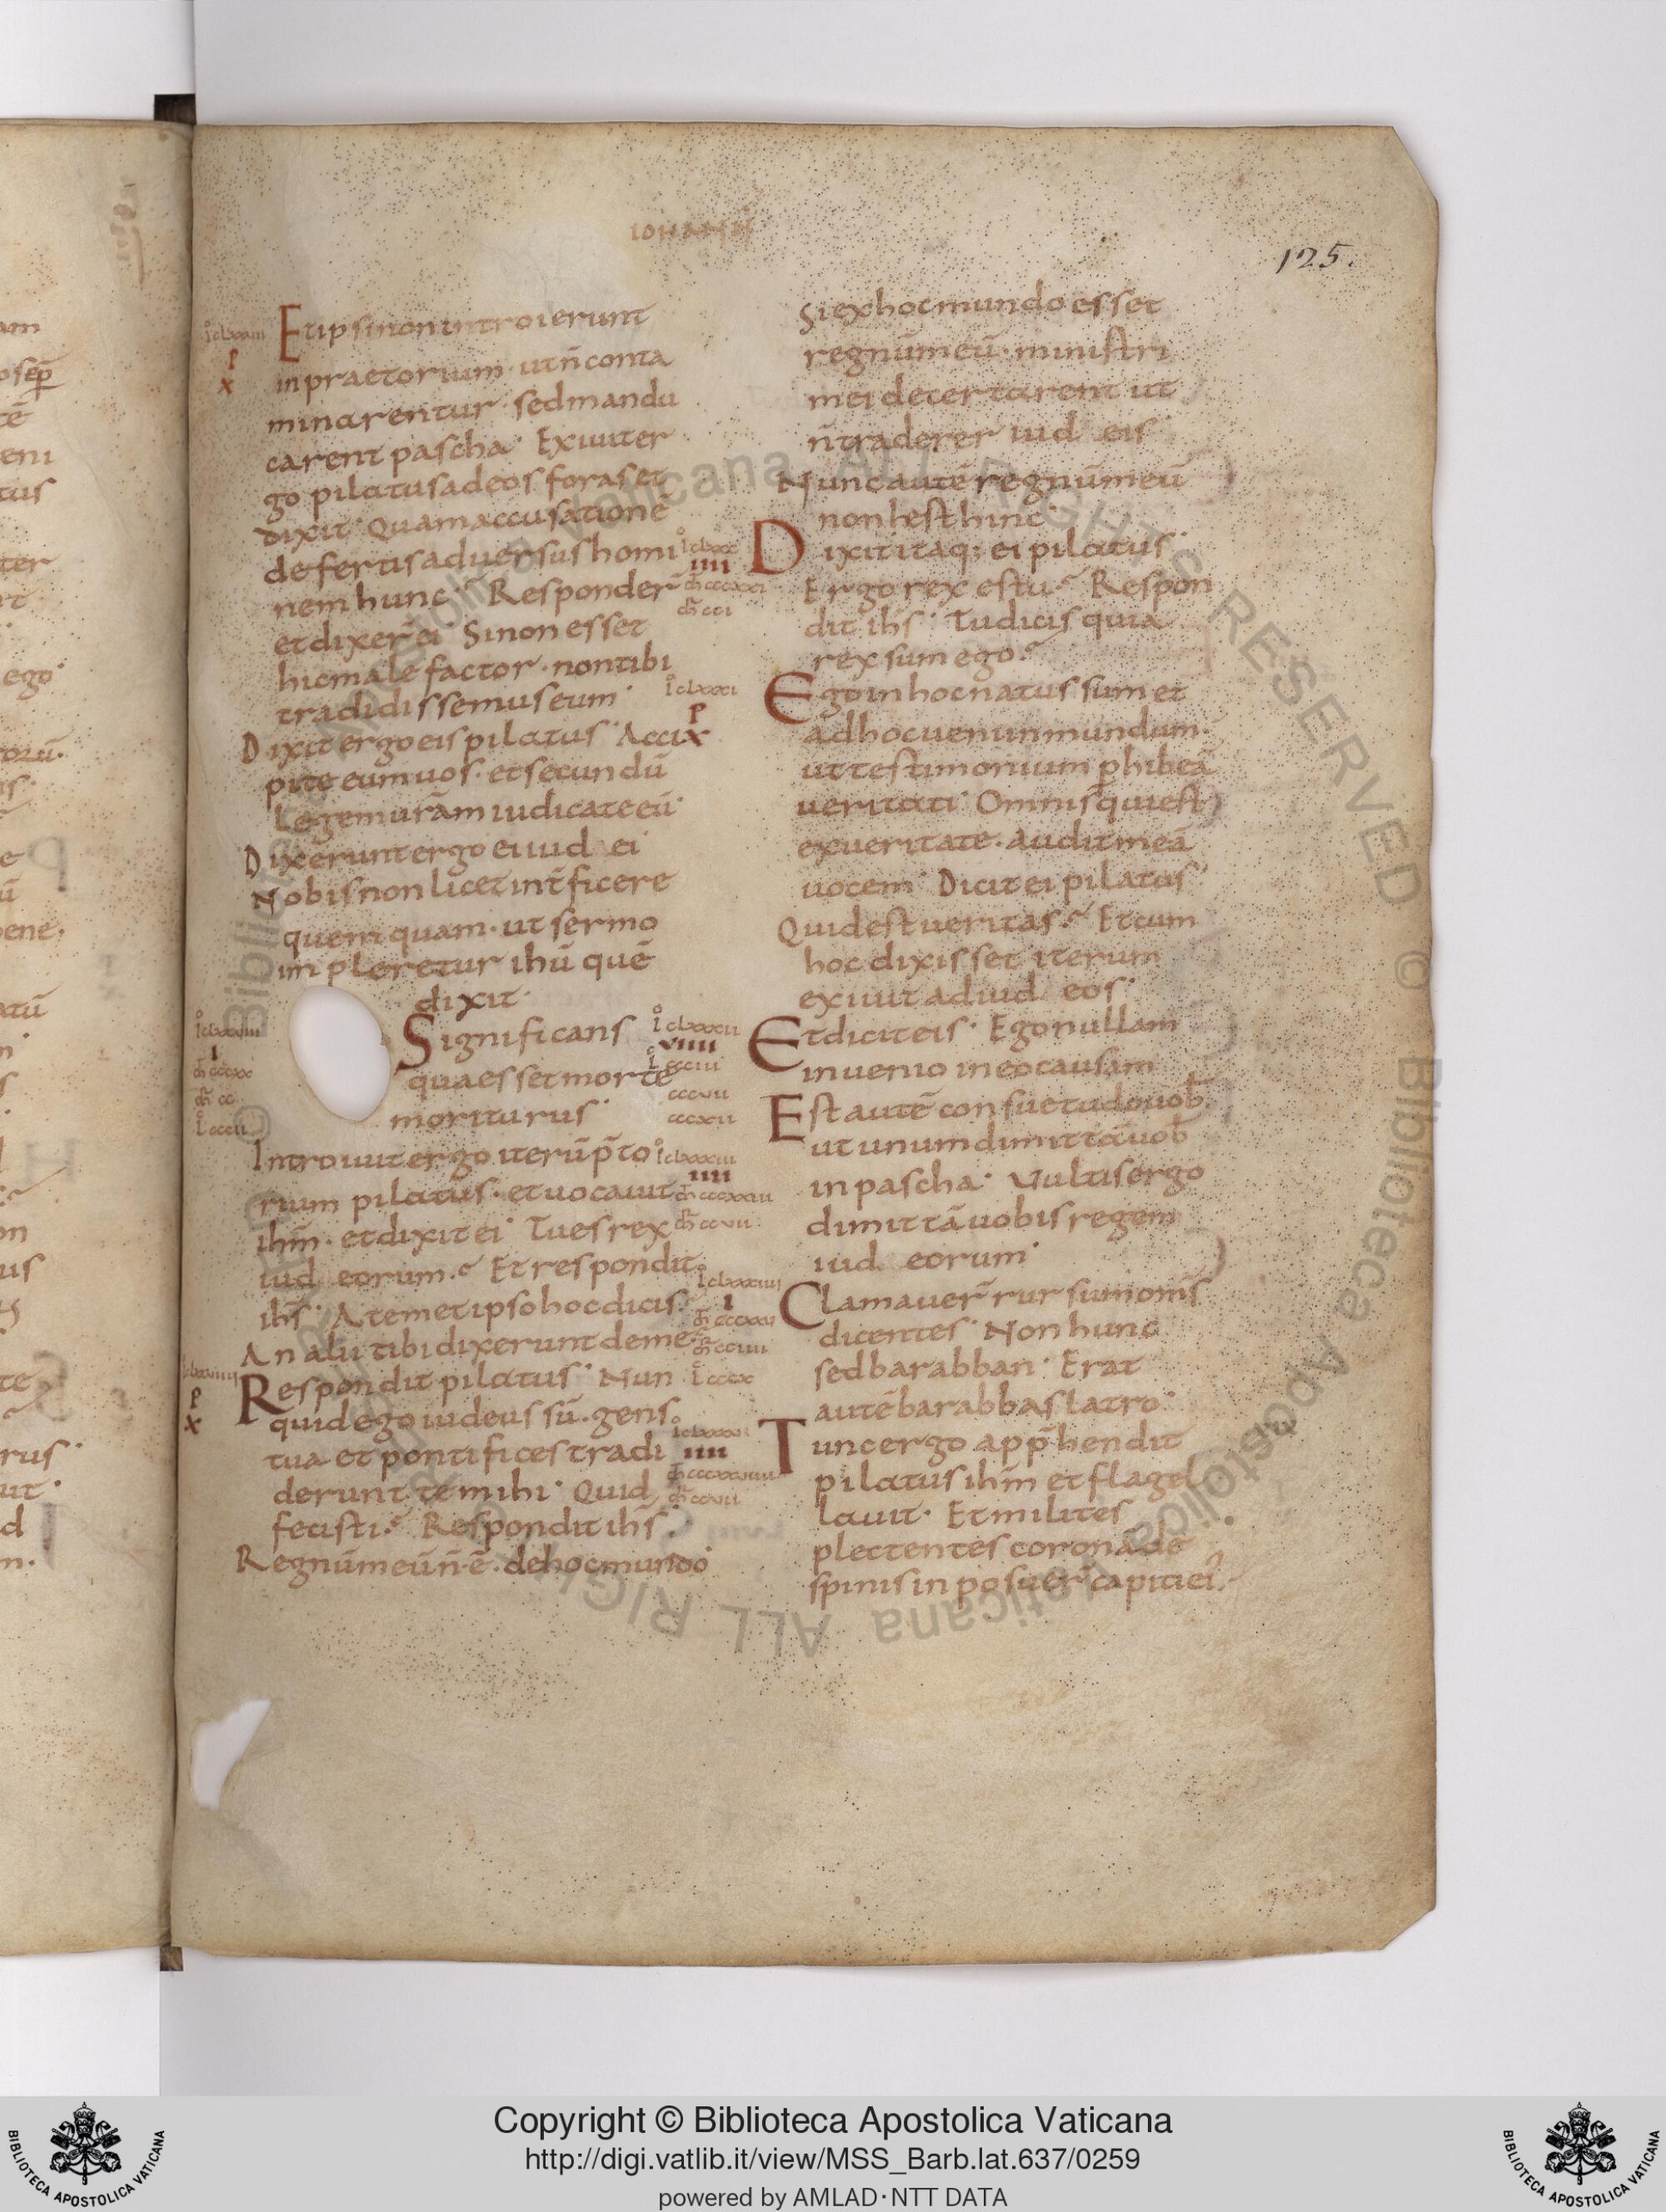 IOHANNIS
125.
Et ipsi non introierunt
in praetorium · ut n̄ conta
minarentur · sed mandu
carent pascha · Exiuit er
go pilatus ad eos foras et
dixit · Quam accusationē
defertis aduersus homi
nem hunc · Responder̄
et dixer̄ ei · Si non esset
hic malefactor · non tibi
tradidissemus eum ·
Dixit ergo eis pilatus · Acci
pite eum uos · et secundū
legem ur̄am iudicate eū ·
Dixerunt ergo ei iud ei
Nobis non licet int̄ficere
quemquam · ut sermo
impleretur ihū quē
dixit ·
Significans
qua esset mortē
moriturus ·
Introiuit ergo iterū p̄to
rium pilatus · et uocauit
ihm̄ · et dixit ei · Tu es rex
iud eorum · Et respondit
ihs̄ · A temet ipso hoc dicis
An alii tibi dixerunt de me
Respondit pilatus · Nun
quid ego iudeus sū · gens
tua et pontifices tradi
derunt te mihi · Quid
fecisti · Respondit ihs̄ ·
Regnū meū n̄ · ē · de hoc mundo
Si ex hoc mundo esset
regnū meū · ministri
mei decertarent ut
n̄ traderer iud eis ·
Nunc autē regnū meū
non est hinc ·
Dixit itaq; ei pilatus ·
Ergo rex es tu · Respon
dit ihs̄ · Tu dicis quia
rex sum ego ·
Ego in hoc natus sum et
ad hoc ueni in mundum ·
ut testimonium p̱hibeā
ueritati · Omnis qui est
ex ueritate · audit meā
uocem · Dicit ei pilatus ·
Quid est ueritas · Et cum
hoc dixisset iterum
exiuit ad iud eos ·
Et dicit eis · Ego nullam
inuenio in eo causam
Est autē consuetudo uob̄ ·
ut unum dimittā uob̄
in pascha · Uultis ergo
dimittā uobis regem
iud eorum ·
Clamauer̄ rursum om̄s
dicentes · Non hunc
sed barabban · Erat
autē barabbas latro ·
Tunc ergo app̄hendit
pilatus ihm̄ et flagel
lauit · Et milites
plectentes coronā de
spinis inposuer̄ capiti ei;
Copyright © Biblioteca Apostolica Vaticana
http://digi.vatlib.it/view/MSS_Barb.lat.637/0259
powered by AMLAD·NTT DATA
BIBLIOTECA APOSTOLICA VATICANA
BIBLIOTECA APOSTOLICA VATICANA